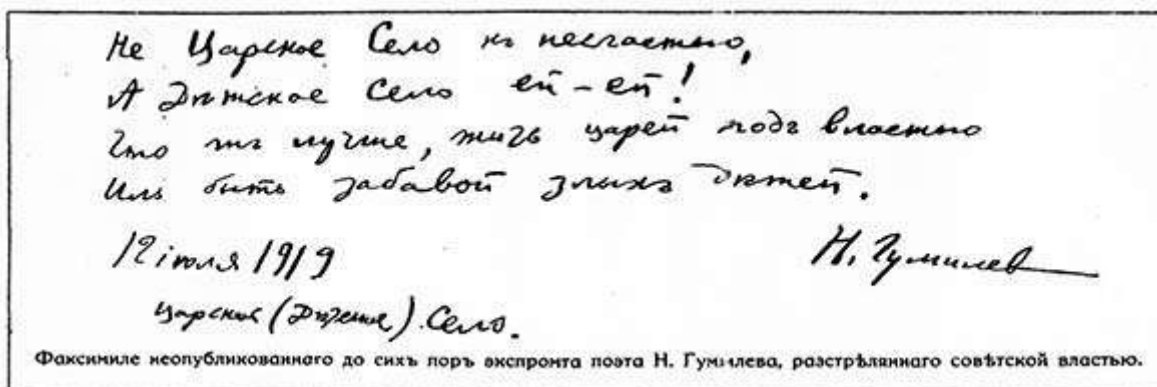 Не Царское Село къ несчастью,
А Дѣтское Село ей-ей!
Что жъ лучше, жить царей подъ властью
Иль быть забавой злыхъ дѣтей.
12 іюля 1919
Н. Гумилев
Царское (Дѣтское) Село.
Факсимиле неопубликованнаго до сихъ поръ экспромта поэта Н. Гумилева, разстрѣляннаго совѣтской властью.